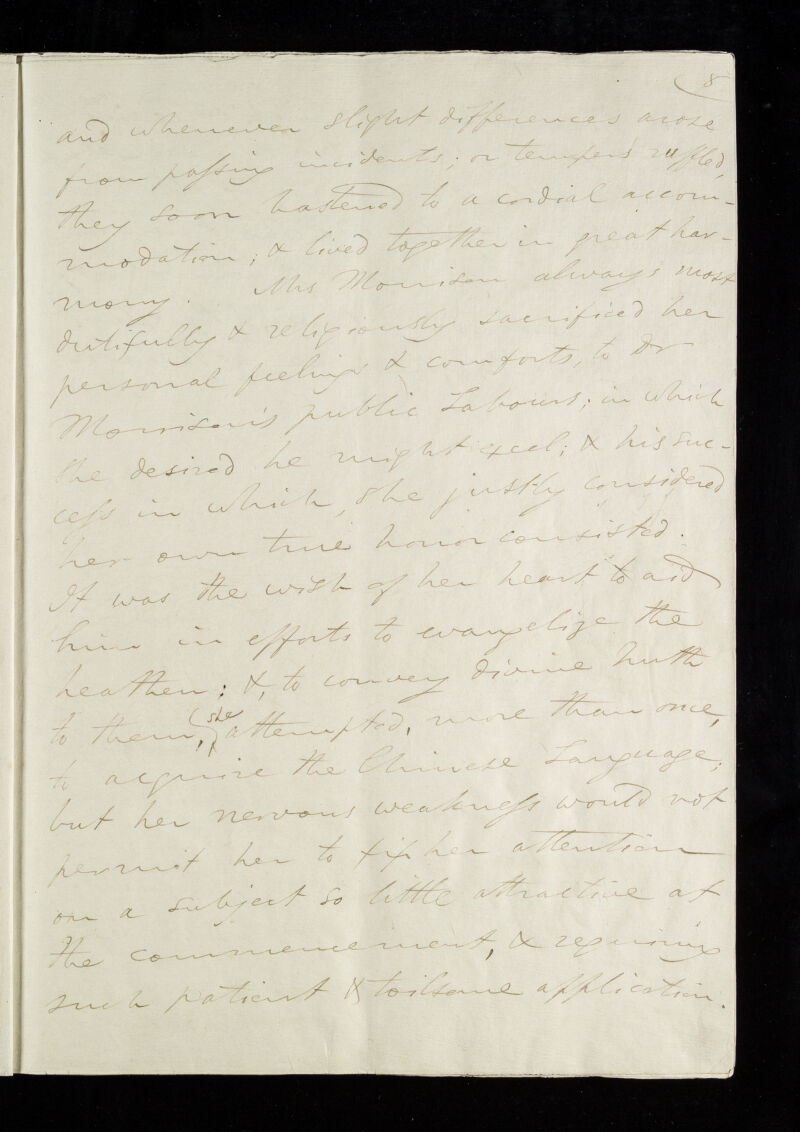 8
and whenever slight differences arose
from passing incidents; or tempers ruffled,
they soon hastened to a cordial accom-
modation; & lived together in great har-
mony. Mrs Morrison always most
dutifully & religiously sacrificed her
personal feelings & comforts, to Dr
Morrison's public Labours; in which
she desired he might excel; & his suc-
cess in which, she justly considered
her own true honor consisted.
It was the wish of her heart to aid
him in efforts to evangelize the
heathen; &, to convey divine truth
to them, she attempted, more than once,
to acquire the Chinese Language;
but her nervous weakness would not
permit her to fix her attention
on a subject so little attractive at
the commencement, & requiring
such patient & toilsome application.